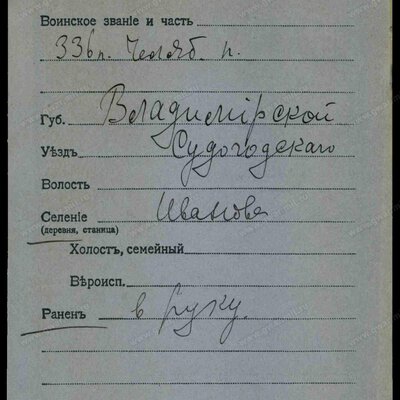 Воинское званіе и часть
336 п. Челяб. п.
Губ. Владимірской
Уѣздъ Судогодскаго
Волость
Селеніе Иванова
(деревня, станица)
Холостъ, семейный
Вѣроисп.
Раненъ в руку.